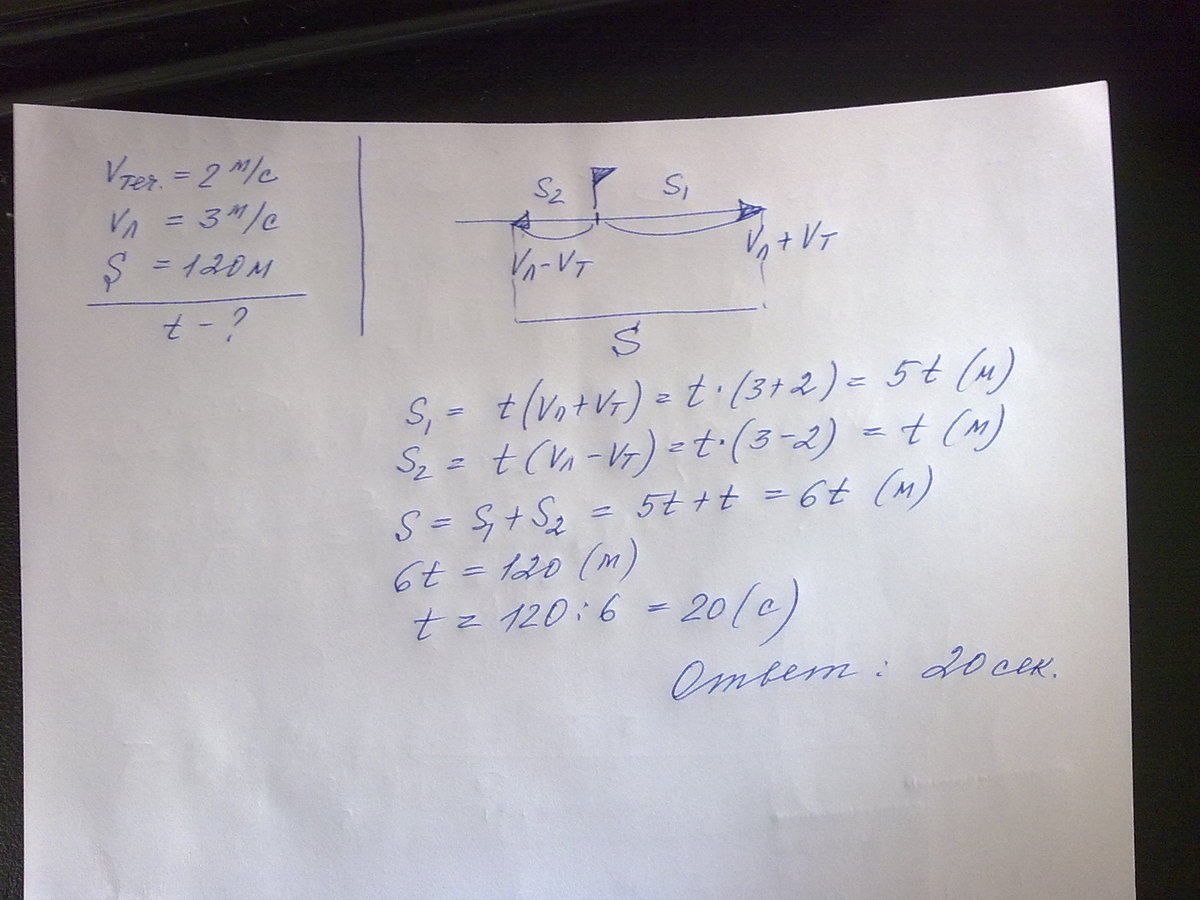 Vтеч. = 2 м/с
Vл = 3 м/с
S = 120 м
t - ?
S2 S1
Vл - Vт Vл + Vт
S
S1 = t (Vл + Vт) = t · (3+2) = 5t (м)
S2 = t (Vл - Vт) = t · (3-2) = t (м)
S = S1 + S2 = 5t + t = 6t (м)
6t = 120 (м)
t = 120 : 6 = 20 (с)
Ответ: 20 сек.